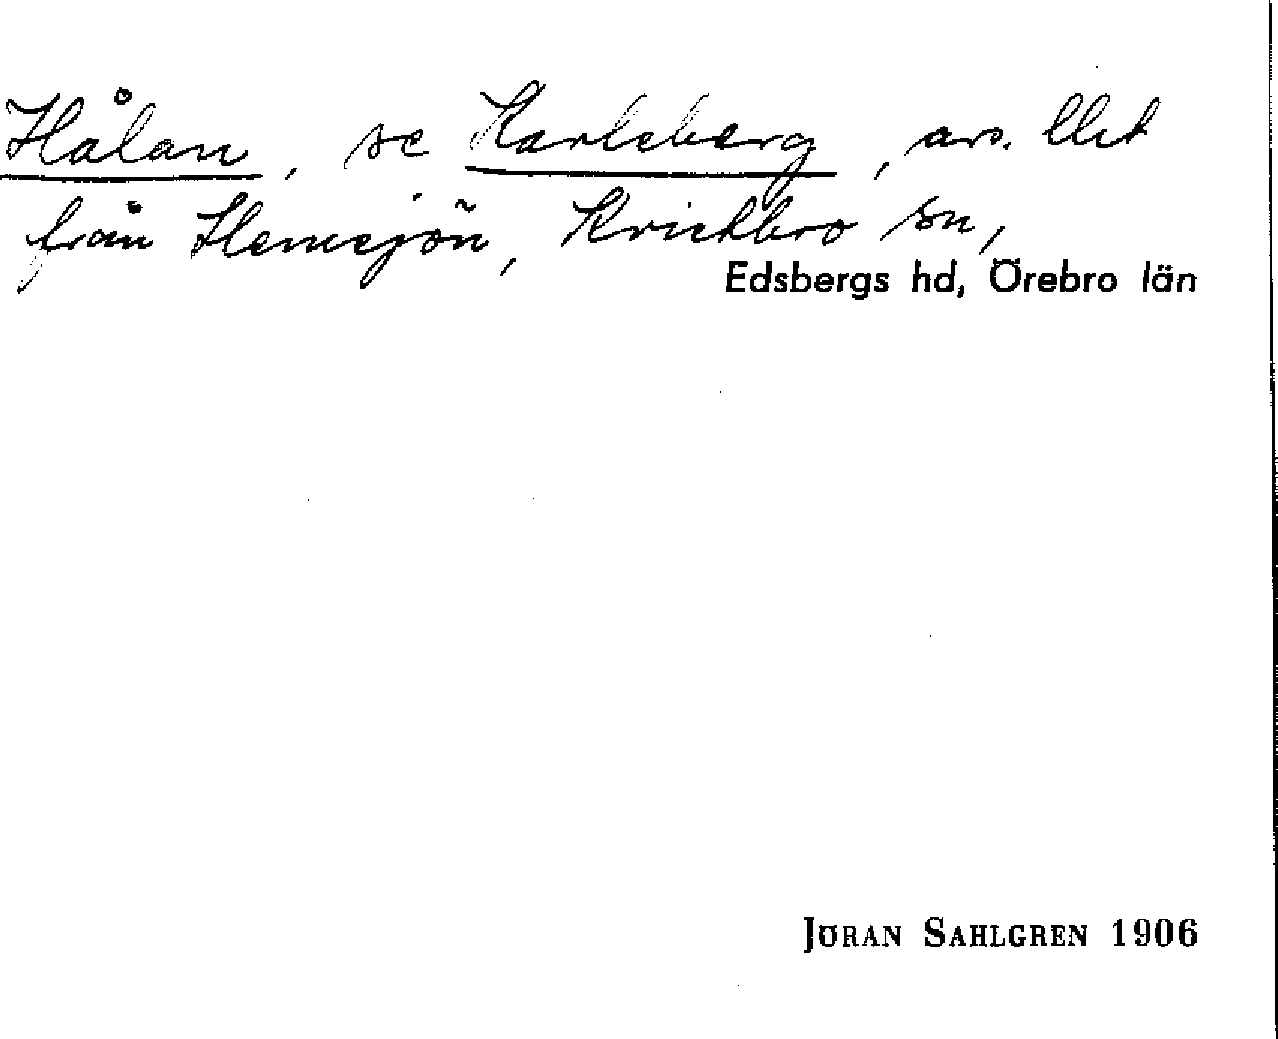 Hålan, se Karlsberg, avs. llet
från Hemsjön, Kvistbro sn,
Edsbergs hd, Örebro län
JÖRAN SAHLGREN 1906